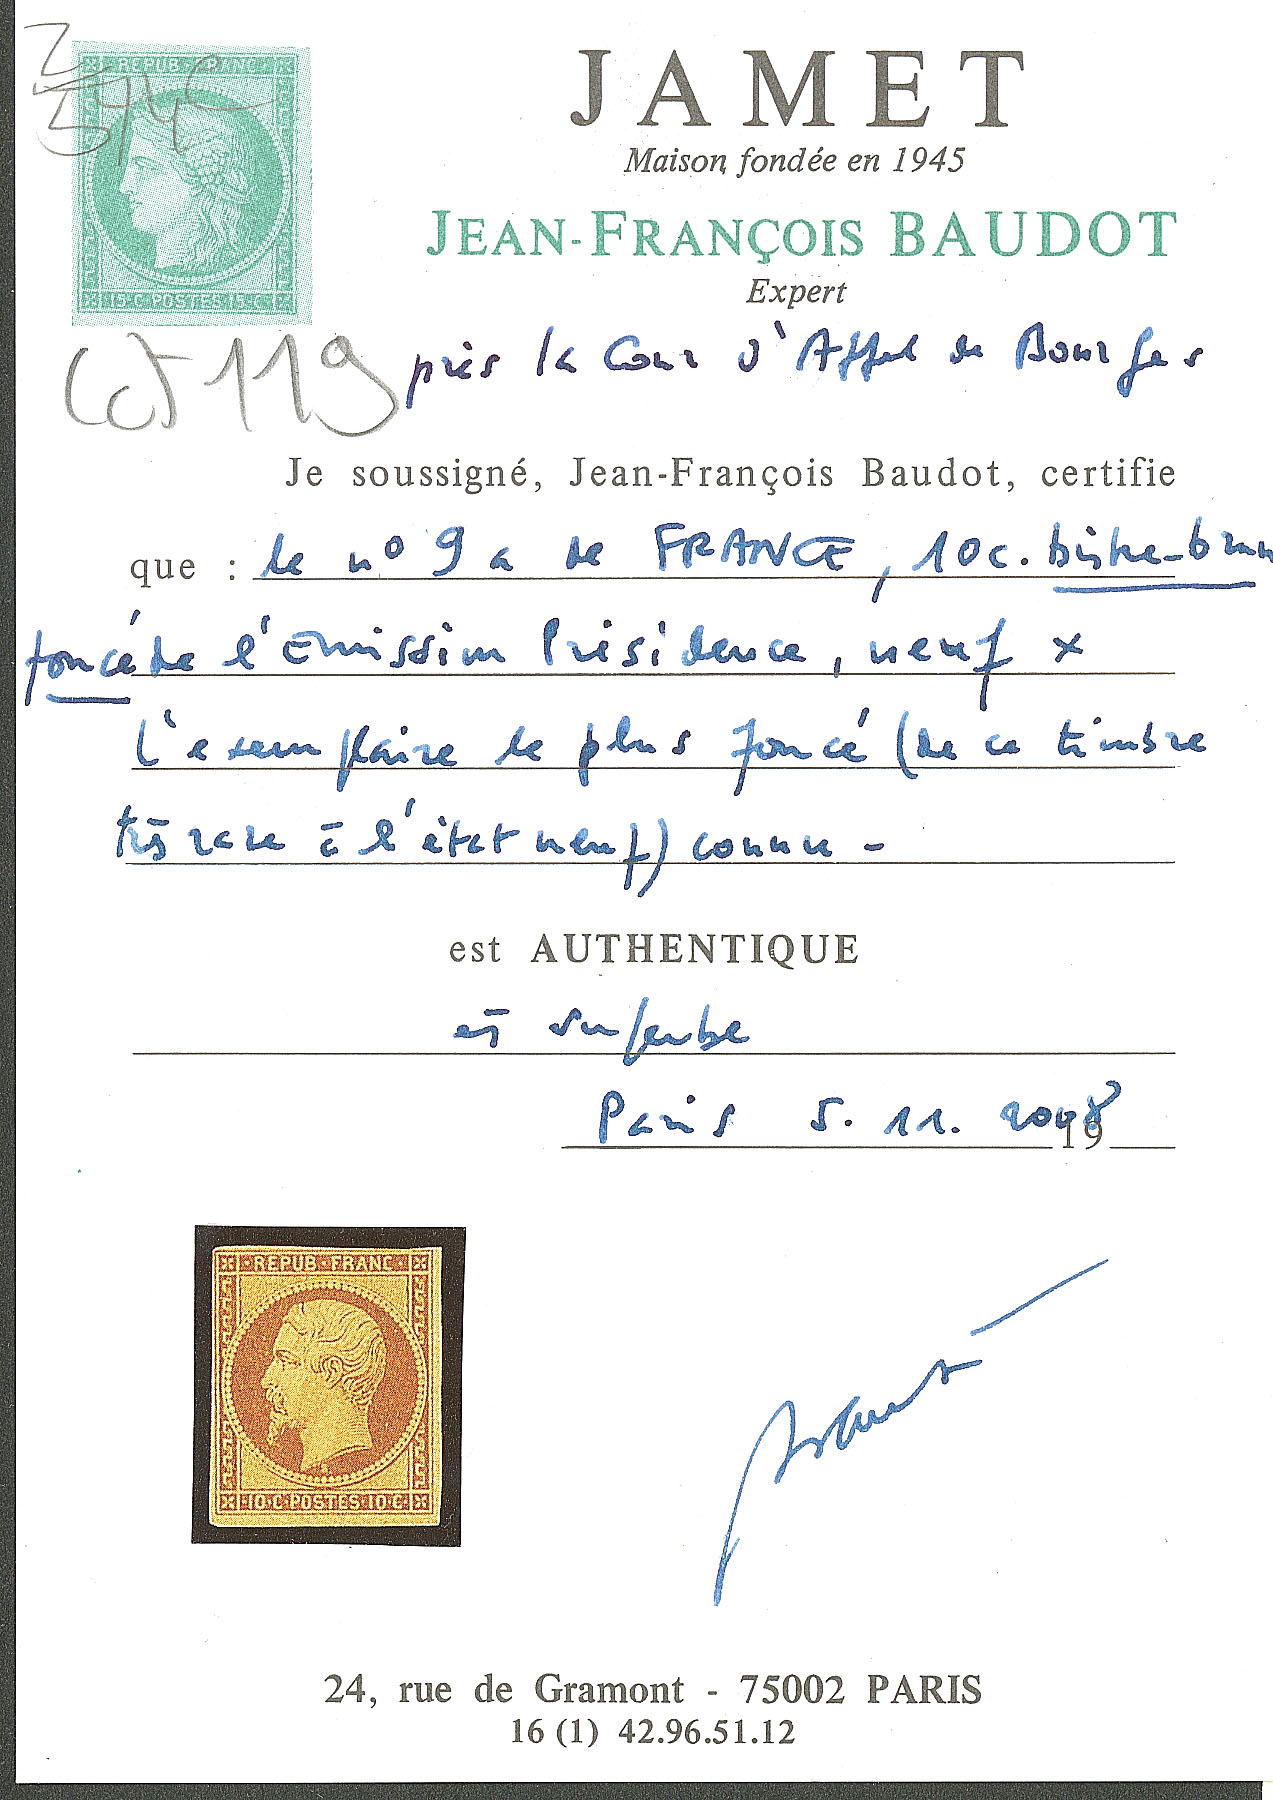 REPUB·FRANC·
15·C·POSTES·15·C·
JAMET
Maison fondée en 1945
JEAN-FRANÇOIS BAUDOT
Expert
119
près la Cour d'Appel de Bourges
Je soussigné, Jean-François Baudot, certifie
que : le nº 9a de FRANCE, 10c. bistre-brun
foncé de l'émission Présidence, neuf x
L'exemplaire le plus foncé (de ce timbre
très rare à l'état neuf) connu -
est AUTHENTIQUE
et superbe
Paris 5. 11. 2008
19
·REPUB·FRANC·
·10·C·POSTES·10·C·
24, rue de Gramont - 75002 PARIS
16 (1) 42.96.51.12